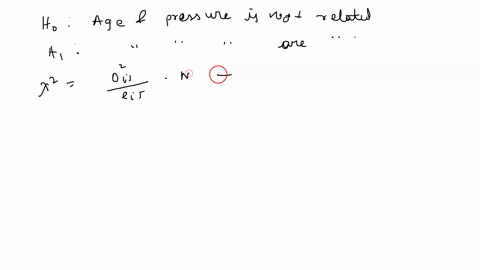 H₀ : Age & pressure is not related
A₁ : " " " are " "
χ² = O²ij / eij . N